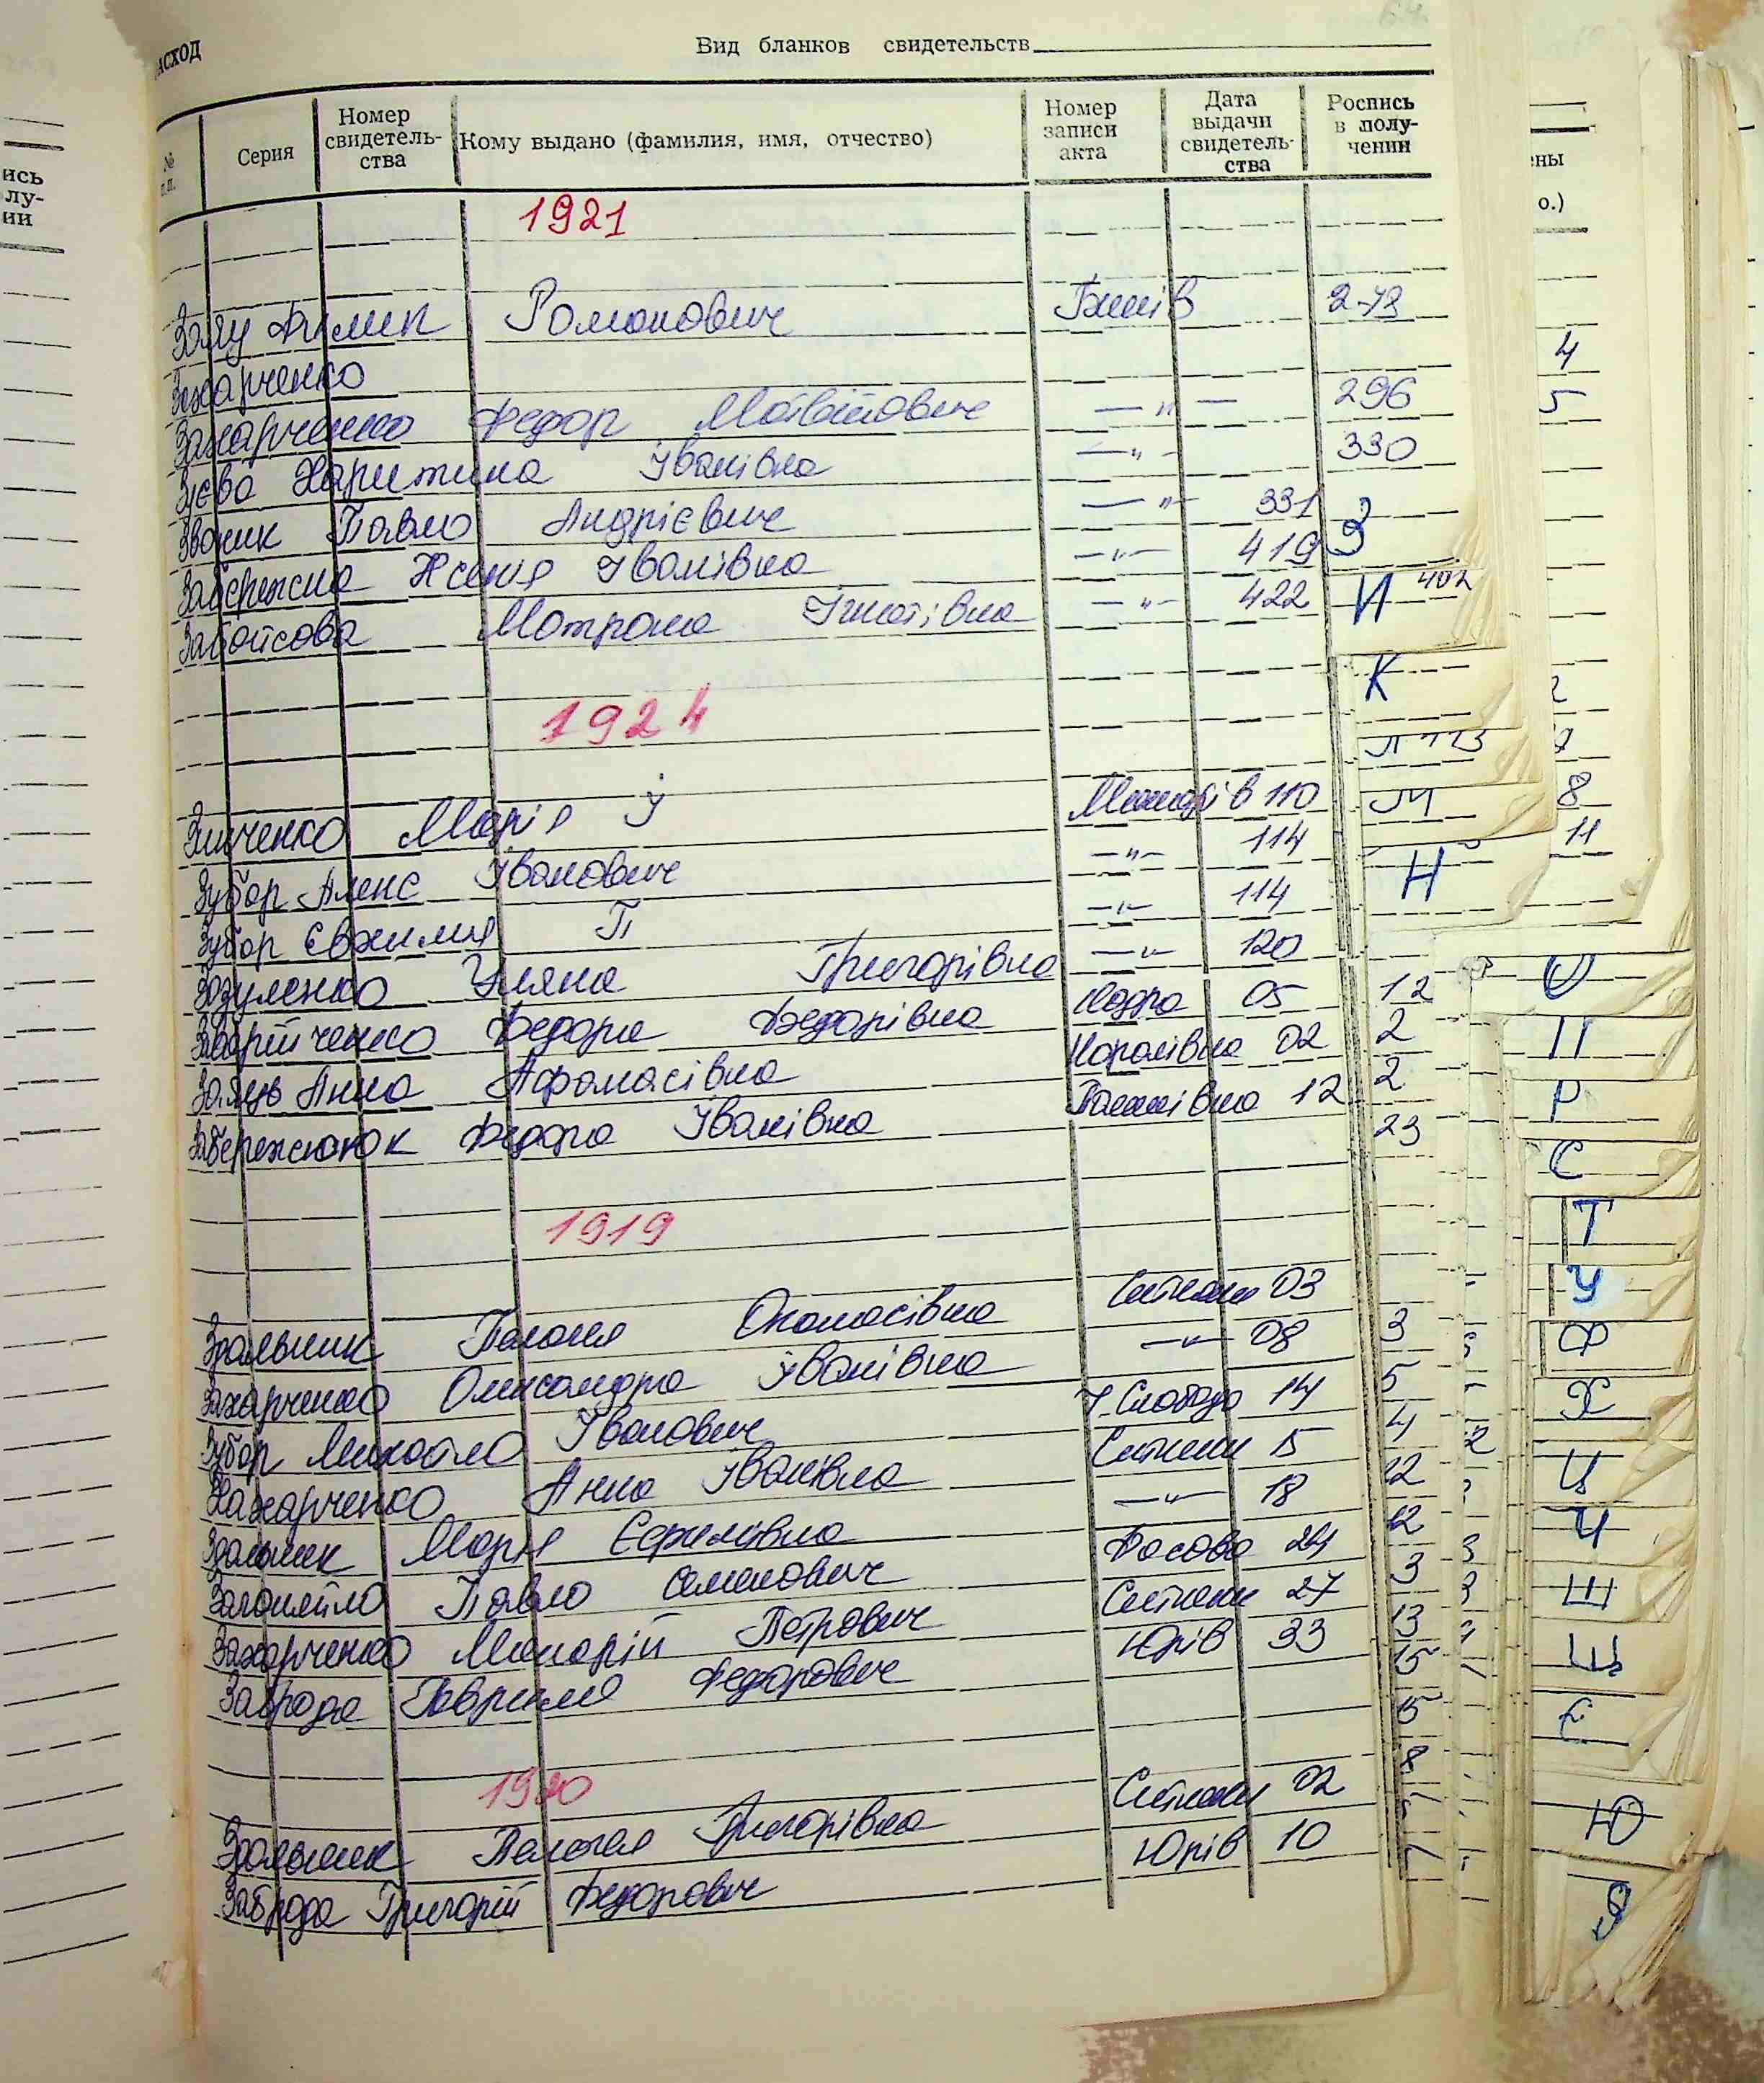 РАСХОД
Вид бланков свидетельств
№ п.п.
Серия
Номер свидетель-ства
Кому выдано (фамилия, имя, отчество)
Номер записи акта
Дата выдачи свидетель-ства
Роспись в полу-чении
1921
Филип Романович 2-73
Захарченко
Захарченко Федор Матвійович — " — 296
Зуєва Харитина Іванівна — " — 330
Звоник Павло Андрієвич — " — 331
Забережна Ксенія Іванівна — " — 419
Забойсова Мотрона Ігнатівна — " — 422
1924
Зінченко Марія І Макарів 110
Зубар Алекс Іванович — " — 114
Зубар Євхимія П — " — 114
Зозуленко Уляна Григорівна — " — 120
Федора Федорівна Кодра 05
Заяць Анна Афонасівна Королівка 02
Забережнюк Федора Іванівна 12
1919
Здольник Пелагея Опанасівна Ситняки 03
Захарченко Олександра Іванівна — " — 08
Зубар Михайло Іванович Слобода 14
Захарченко Анна Іванівна Ситняки 15
Здольник Марія Єфимівна — " — 18
Загоруйло Павло Семенович Фасова 24
Захарченко Макарій Петрович Ситняки 27
Заброда Гаврило Федорович Юрів 33
1920
Здольник Пелагея Григорівна Ситняки 02
Заброда Григорій Федорович Юрів 10
З
И 402
К
Л
М
Н
О
П
Р
С
Т
У
Ф
Х
Ц
Ч
Ш
Щ
Є
Ю
Я